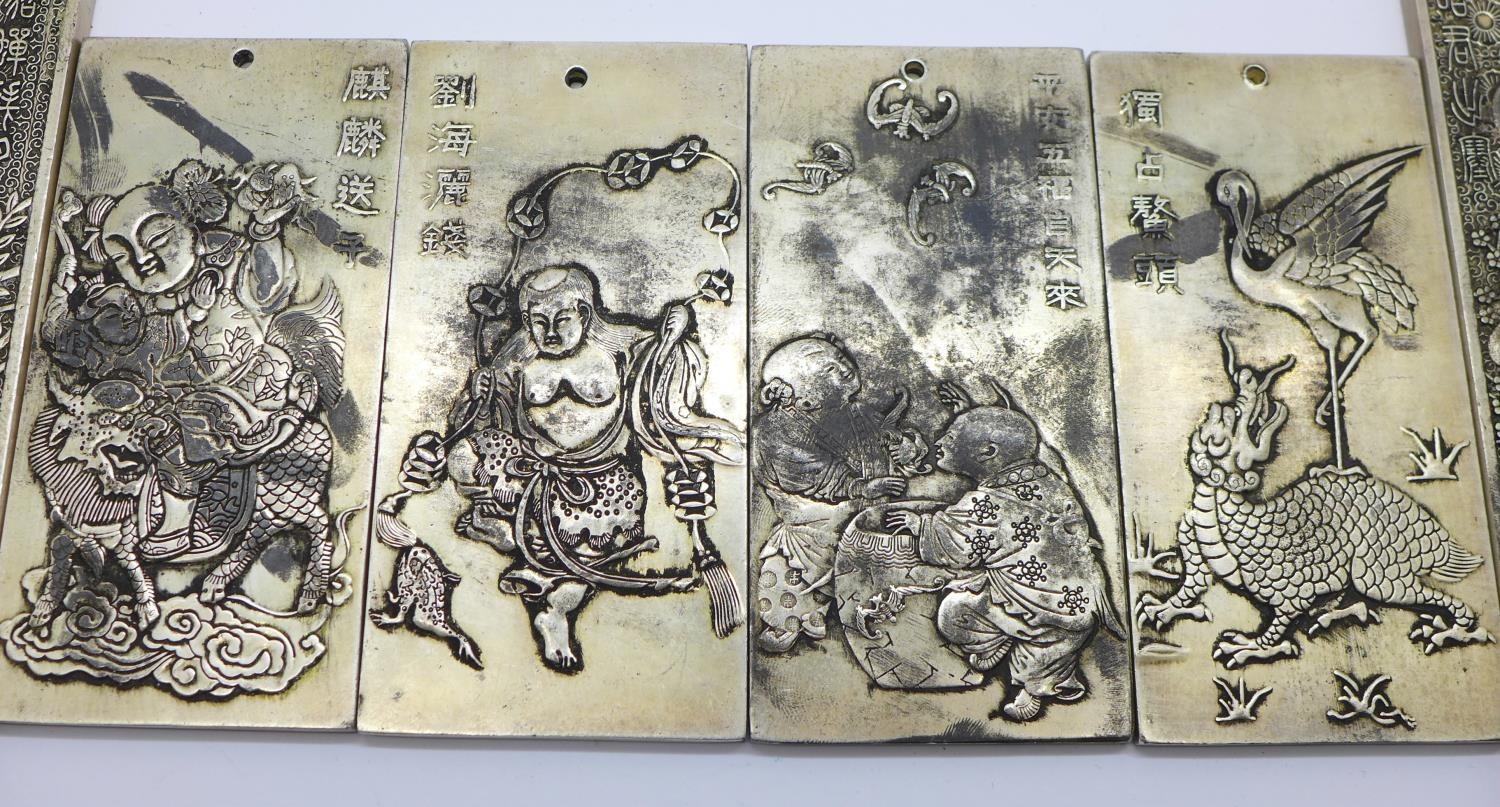 麒麟送子
劉海灑錢
平安五福自天來
獨占鰲頭